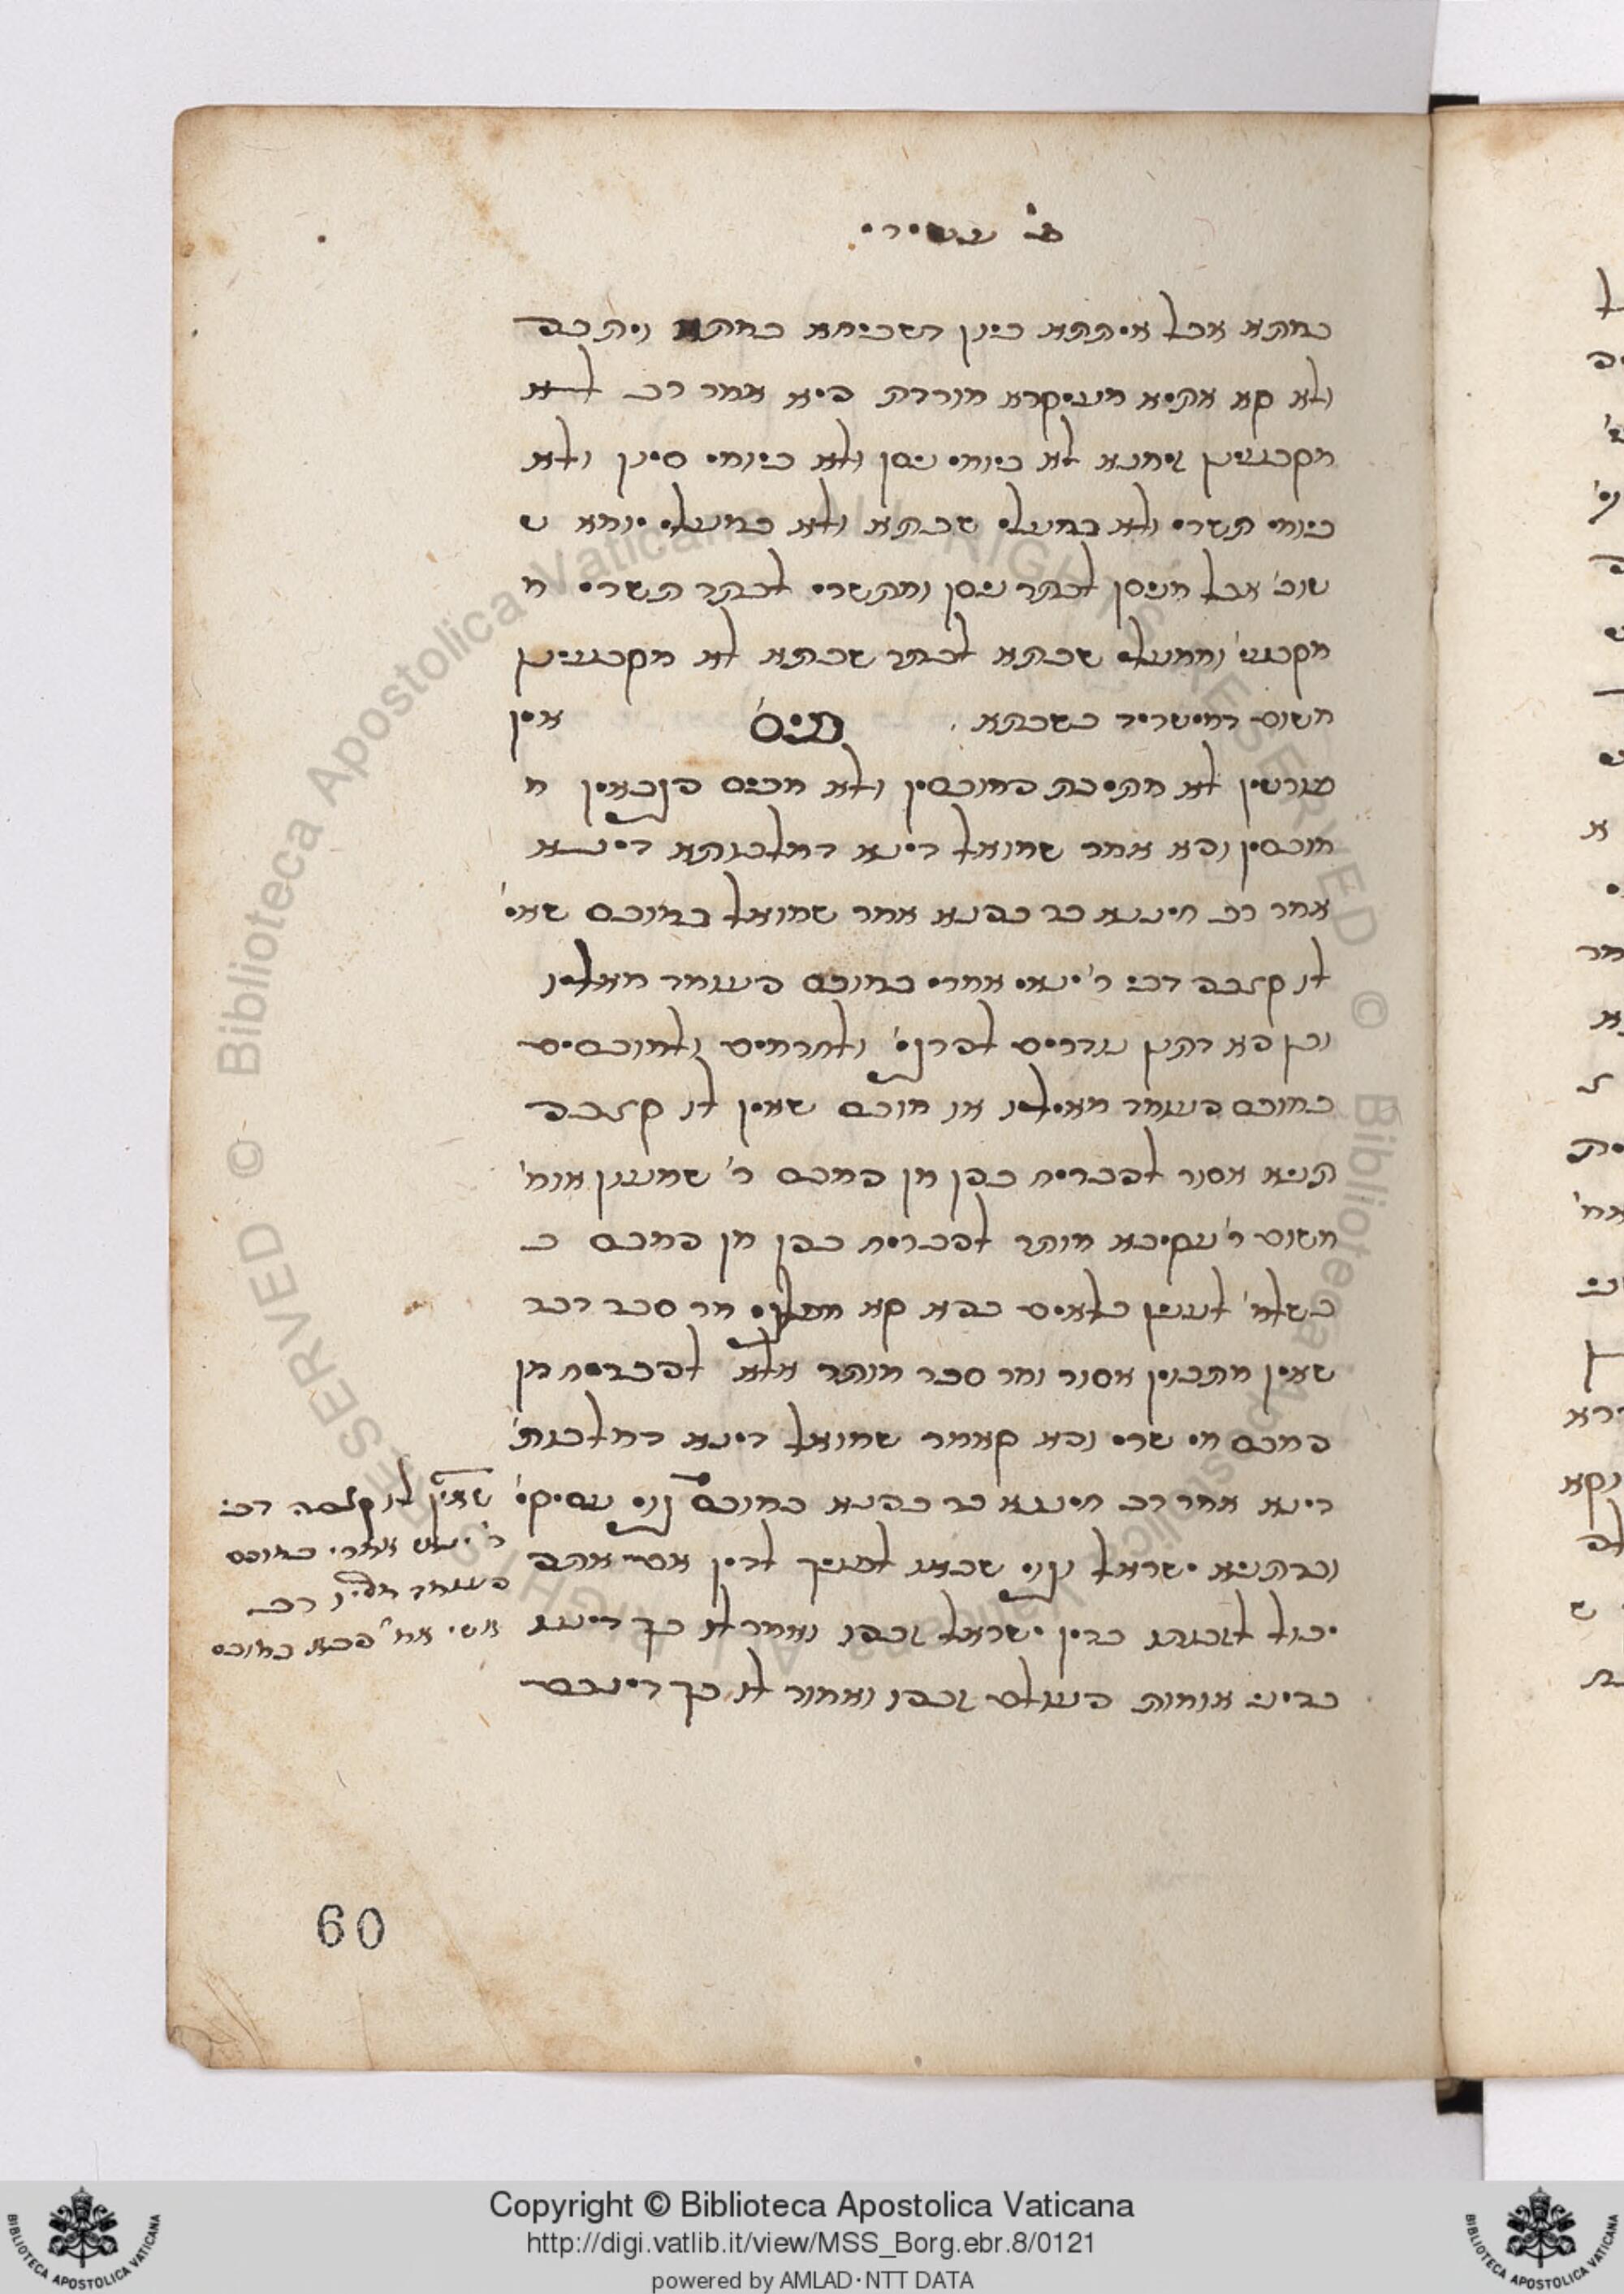 פ' עשירי
במתא אבל איתתא כיון דשכיחא במתא ויתבה
ולא קא אתיא מעיקרא מורדת היא אמר רב לא
מקבעינן זימנא לא ביומי ניסן ולא ביומי סיון ולא
ביומי תשרי ולא במעלי שבתא ולא במעלי יומא ט
טוב' אבל מניסן לבתר ניסן ומתשרי לבתר תשרי מ
מקבעי' וממעלי שבתא לבתר שבתא לא מקבעינן
משום דמיטריד בשבתא פיס' אין
פורטין לא מתיבת המוכסין ולא מכיס הגבאין מ
מוכסין והא אמר שמואל דינא דמלכותא דינא
אמר רב חיננא בר כהנא אמר שמואל במוכס שאי'
לו קצבה דבי ר' ינאי אמרי במוכס העומד מאליו
וכן הא דתנן נודרים להרגי' ולחרמים ולמוכסים
במוכס העומד מאיליו או מוכס שאין לו קצבה
תניא אסור להבריח בהן מן המכס ר' שמעון אומ'
משום ר' עקיבא מותר להבריח בהן מן המכס ב
בשלמ' לענין כלאים בהא קא מפלגי מר סבר דבר
שאין מתכוין אסור ומר סבר מותר אלא להבריח מן
המכס מי שרי והא קאמר שמואל דינא דמלכות'
דינא אמר רב חיננא בר כהנא במוכס גוי עסיקי'
ובדתניא ישראל וגוי שבאו לפניך לדין אם אתה
יכול לזכותו בדין ישראל זכהו ואמר לו כך דיננו
בדיני אומות העולם זכהו ואמור לו כך דינכם
שאין לו קצבה דבי
ר' ינאי אמרי במוכס
העומד מאליו רב
אשי אמ' הכא במוכס
60
Copyright © Biblioteca Apostolica Vaticana
http://digi.vatlib.it/view/MSS_Borg.ebr.8/0121
powered by AMLAD·NTT DATA